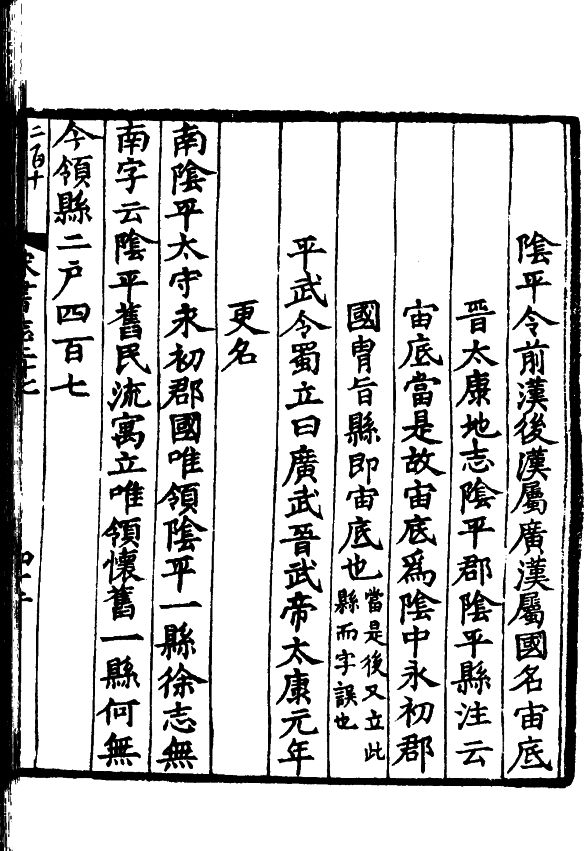 陰平令前漢後漢屬廣漢屬國名宙底
晉太康地志陰平郡陰平縣注云
宙底當是故宙底爲陰中永初郡
國胄旨縣即宙底也當是後又立此
縣而字誤也
平武令蜀立曰廣武晉武帝太康元年
更名
南陰平太守永初郡國唯領陰平一縣徐志無
南字云陰平舊民流寓立唯領懷舊一縣何無
今領縣二戶四百七
二百十
宋書志二十七